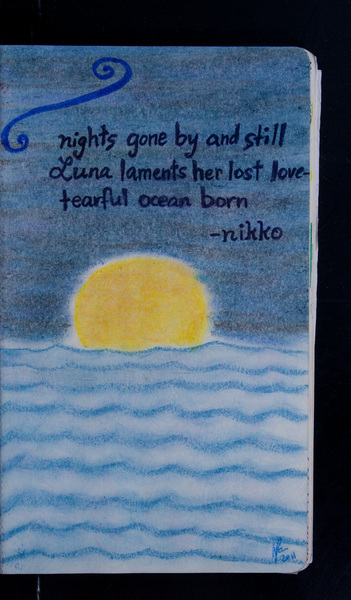 nights gone by and still
Luna laments her lost love-
tearful ocean born
-nikko
2011